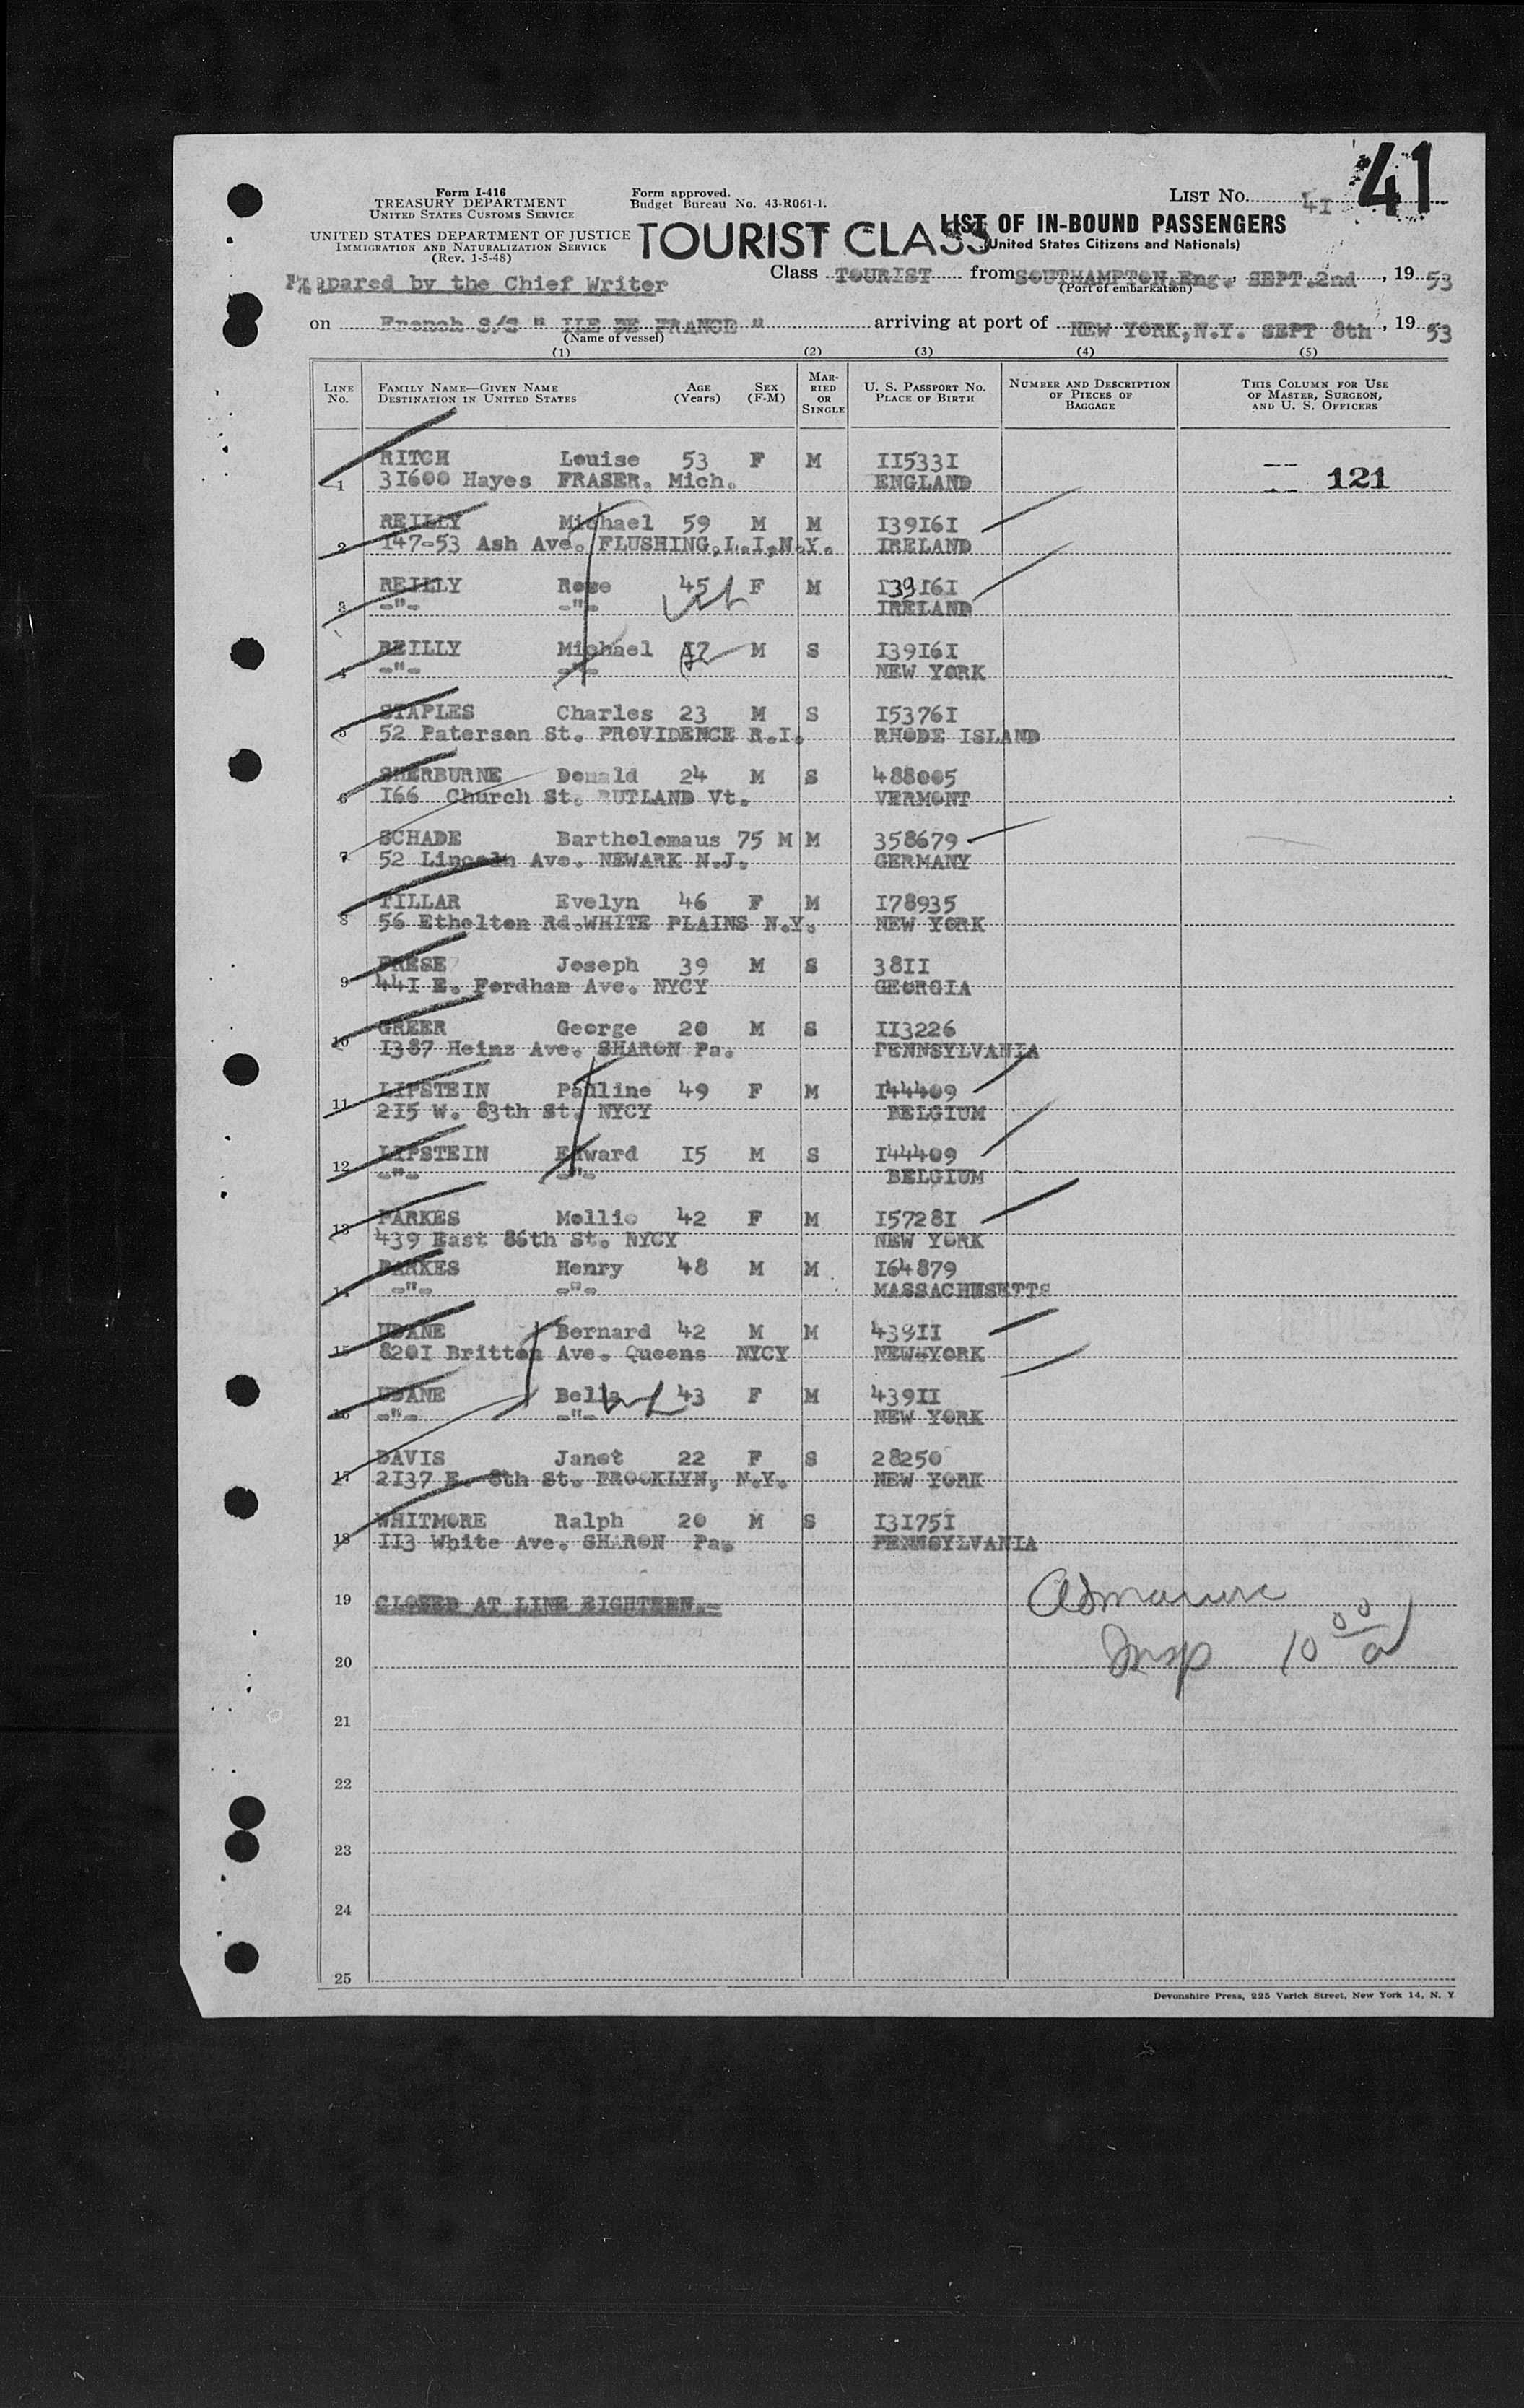 41
Form I-416
TREASURY DEPARTMENT
UNITED STATES CUSTOMS SERVICE
UNITED STATES DEPARTMENT OF JUSTICE
IMMIGRATION AND NATURALIZATION SERVICE
(Rev. 1-5-48)
Form approved.
Budget Bureau No. 43-R061-1.
LIST No. 41
TOURIST CLASS
LIST OF IN-BOUND PASSENGERS
(United States Citizens and Nationals)
Prepared by the Chief Writer
Class TOURIST from SOUTHAMPTON, Eng., SEPT. 2nd, 19 53
(Port of embarkation)
on French S/S " ILE DE FRANCE " arriving at port of NEW YORK, N.Y. SEPT 8th, 19 53
(Name of vessel)
(1) (2) (3) (4) (5)
LINE No. FAMILY NAME—GIVEN NAME DESTINATION IN UNITED STATES AGE (Years) SEX (F-M) MARRIED OR SINGLE U. S. PASSPORT NO. PLACE OF BIRTH NUMBER AND DESCRIPTION OF PIECES OF BAGGAGE THIS COLUMN FOR USE OF MASTER, SURGEON, AND U. S. OFFICERS
RITCH Louise 53 F M II533I
1 3I600 Hayes FRASER, Mich. ENGLAND 121
REILLY Michael 59 M M I39I6I
2 I47-53 Ash Ave. FLUSHING, L.I, N.Y. IRELAND
REILLY Rose 45 F M I39I6I
3 -"- -"- IRELAND
REILLY Michael I7 M S I39I6I
4 -"- -"- NEW YORK
STAPLES Charles 23 M S I5376I
5 52 Paterson St. PROVIDENCE R.I. RHODE ISLAND
SHERBURNE Donald 24 M S 488005
6 I66 Church St. RUTLAND Vt. VERMONT
SCHADE Bartholomaus 75 M M 358679
7 52 Lincoln Ave. NEWARK N.J. GERMANY
PILLAR Evelyn 46 F M I78935
8 56 Ethelton Rd. WHITE PLAINS N.Y. NEW YORK
PRESE Joseph 39 M S 38II
9 44I E. Fordham Ave. NYCY GEORGIA
GREER George 20 M S II3226
10 I387 Heinz Ave. SHARON Pa. PENNSYLVANIA
LIPSTEIN Pauline 49 F M I44409
11 2I5 W. 83th St. NYCY BELGIUM
LIPSTEIN Edward I5 M S I44409
12 -"- -"- BELGIUM
PARKES Mollie 42 F M I5728I
13 439 East 86th St. NYCY NEW YORK
PARKES Henry 48 M M I64879
14 -"- -"- MASSACHUSETTS
UDANE Bernard 42 M M 439II
15 820I Britton Ave. Queens NYCY NEW YORK
UDANE Bella 43 F M 439II
16 -"- -"- NEW YORK
DAVIS Janet 22 F S 28250
17 2I37 E. 8th St. BROOKLYN, N.Y. NEW YORK
WHITMORE Ralph 20 M S I3I75I
18 II3 White Ave. SHARON Pa. PENNSYLVANIA
19 CLOSED AT LINE EIGHTEEN.-
20 Insp 10 00 a
21
22
23
24
25
Devonshire Press, 225 Varick Street, New York 14, N. Y